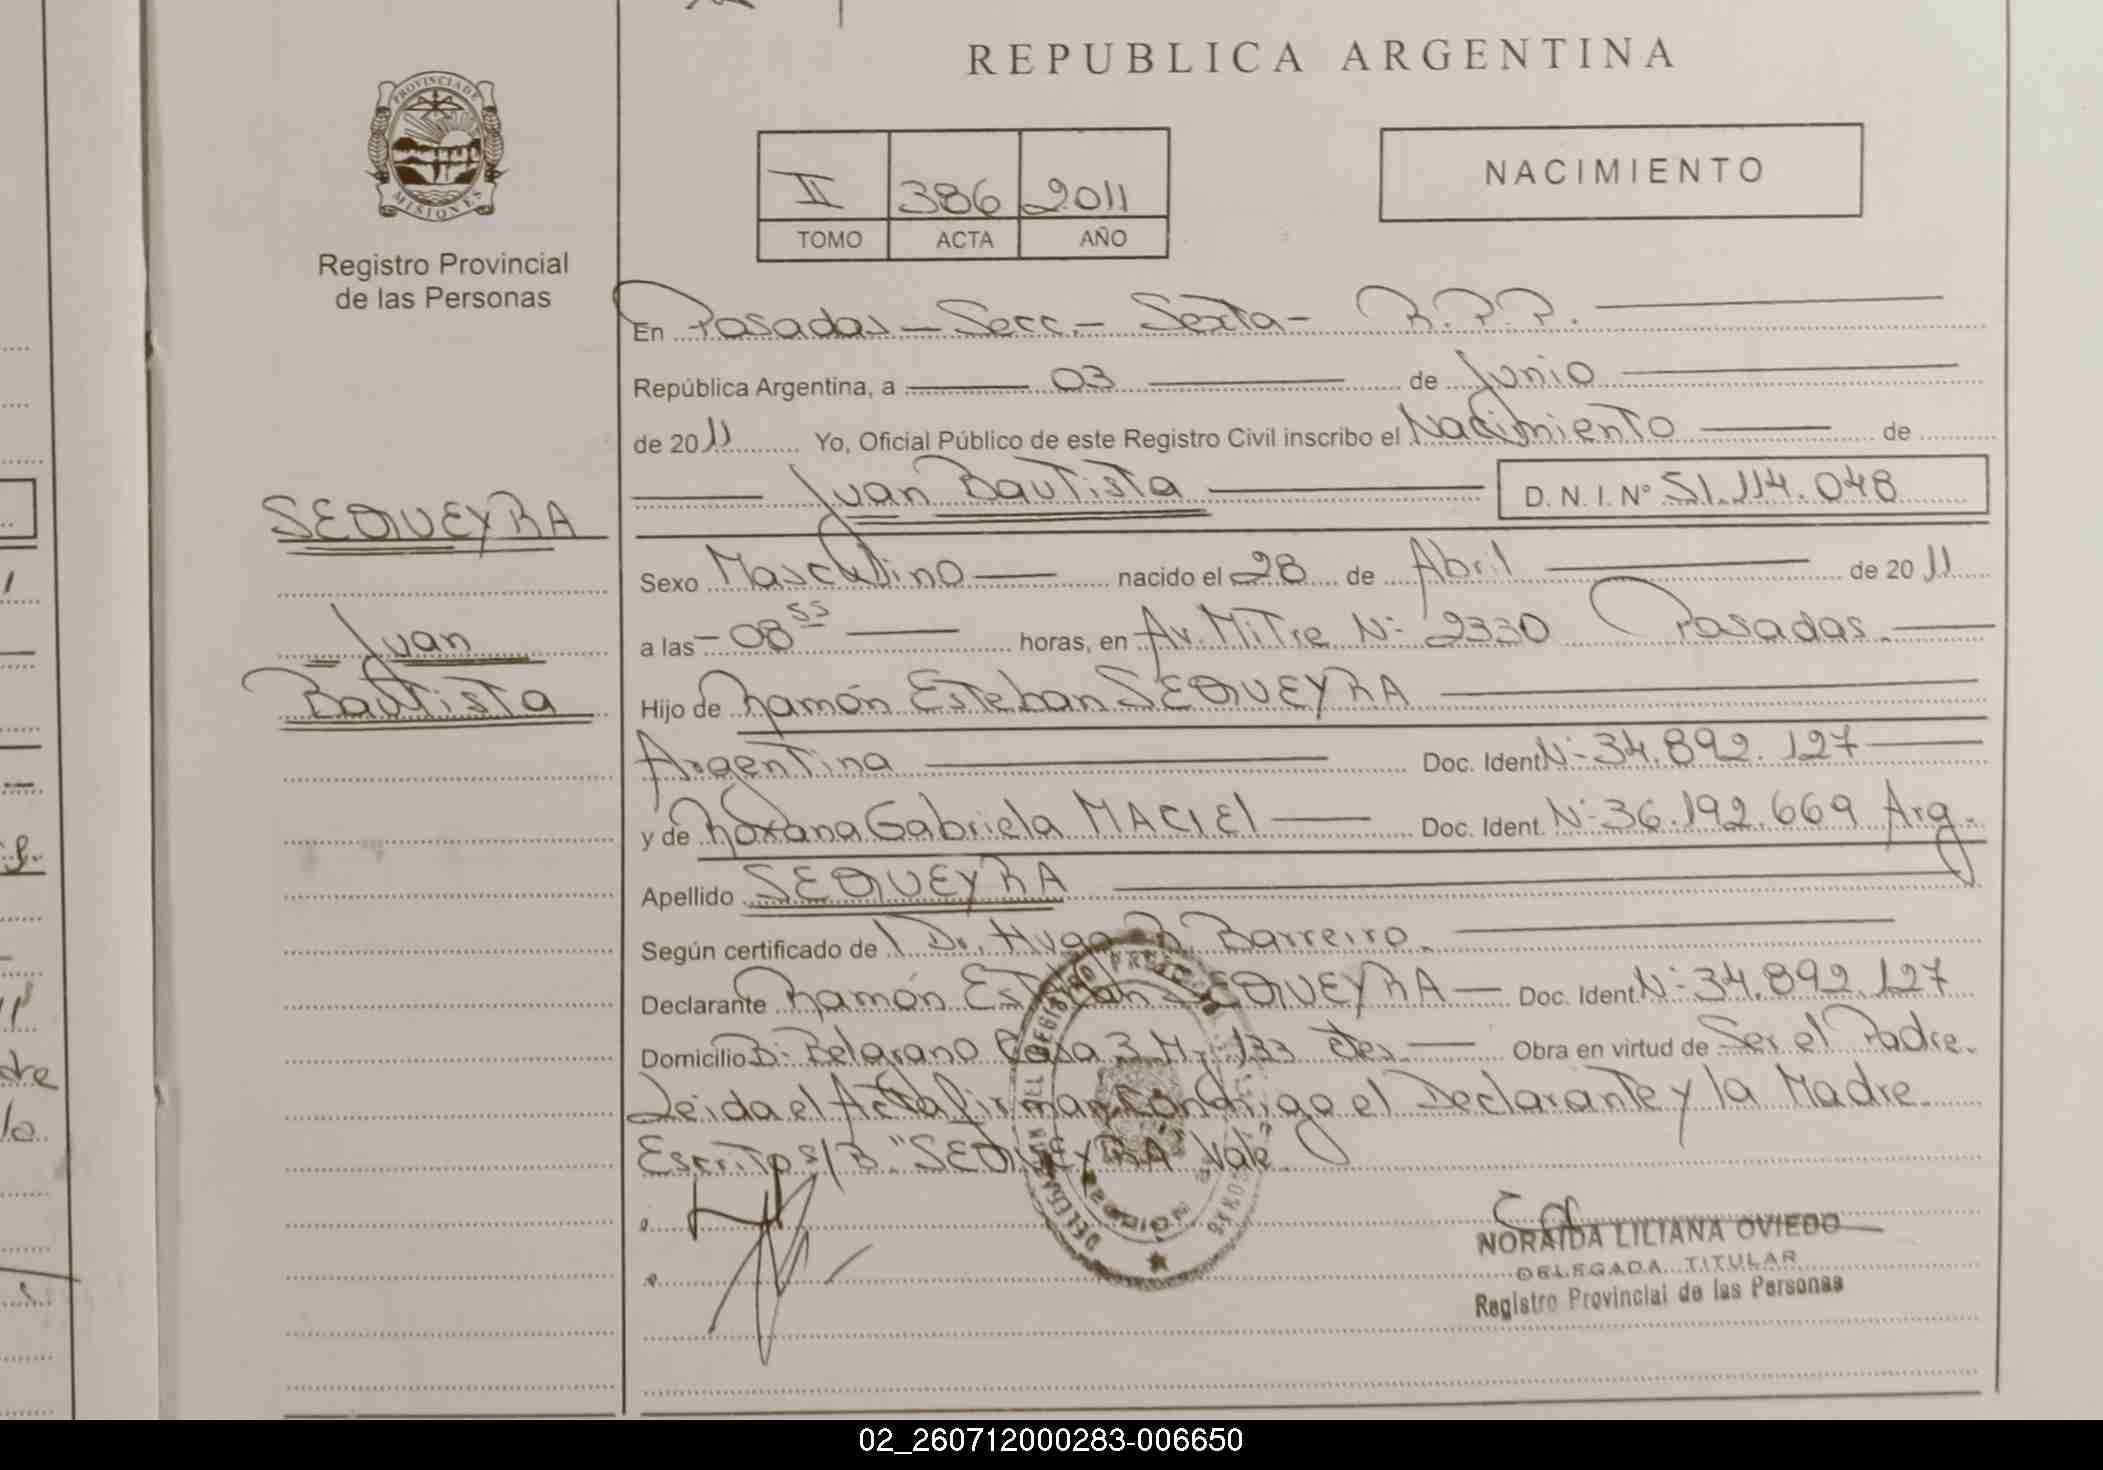 REPUBLICA ARGENTINA
PROVINCIA DE
MISIONES
Registro Provincial
de las Personas
II 386 2011
TOMO ACTA AÑO
NACIMIENTO
En Posadas - Secc. - Sexta - R.P.P.
República Argentina, a 03 de Junio
de 2011 Yo, Oficial Público de este Registro Civil inscribo el Nacimiento de
Juan Bautista D. N. I. Nº 51.114.048
SEQUEYRA
Juan
Bautista
Sexo Masculino nacido el 28 de Abril de 2011
a las - 08 55 horas, en Av. Mitre N: 2330 Posadas.
Hijo de Ramón Esteban SEQUEYRA
Argentina Doc. Ident N: 34.892.127
y de Roxana Gabriela MACIEl Doc. Ident. N: 36.192.669 Arg.
Apellido SEQUEYRA
Según certificado de l Dr. Hugo R. Barreiro.
Declarante Ramón Esteban SEQUEYRA Doc. Ident N: 34.892.127
Domicilio B: Belgrano Casa 3 Mz 133 Obra en virtud de Ser el Padre.
Leida el Acta firman conmigo el Declarante y la Madre
Escrito s/B "SEQUEYRA Vale"
NORAIDA LILIANA OVIEDO
DELEGADA TITULAR
Registro Provincial de las Personas
02_260712000283-006650